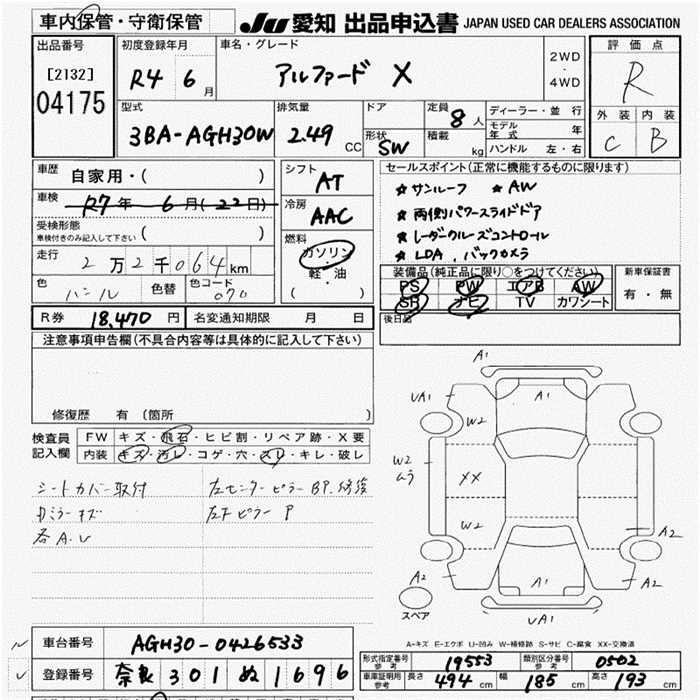 車内保管・守衛保管
Ju 愛知 出品申込書 JAPAN USED CAR DEALERS ASSOCIATION
出品番号
[2132]
04175
初度登録年月
R4 6月
車名・グレード
アルファード X
2WD
・
4WD
評価点
R
外装 内装
C B
型式
3BA-AGH30W
排気量
2.49 CC
ドア
形状
SW
定員
8人
積載
kg
ディーラー・並行
モデル年式 年
ハンドル 左・右
車歴
自家用・( )
車検
R7年 6月(22日)
受検形態
車検付きのみ記入して下さい ( )
走行
2万2千064km
色
パール
色替
色コード
070
シフト
AT
冷房
AAC
燃料
ガソリン
・
軽・油
( )
セールスポイント(正常に機能するものに限ります)
★サンルーフ ★AW
★両側パワースライドドア
★レーダークルーズコントロール
★LDA、バックカメラ
装備品(純正品に限り○をつけてください)
PS PW エアB AW
SR ナビ TV カワシート
新車保証書
有・無
後日品
R券 18,470円
名変通知期限 月 日
注意事項申告欄(不具合内容等は具体的に記入して下さい)
修復歴 有 (箇所 )
検査員記入欄
FW キズ・飛石・ヒビ割・リペア跡・X要
内装 キズ・汚レ・コゲ・穴・スレ・キレ・破レ
シートカバー取付
Dミラーキズ
各A.U
左センターピラーBP.修復
左Fピラー P
A1
UA1
A1
W2
W2
ムラ
XX
W2
A2
A2
A2
A1
UA1
スペア
A-キズ E-エクボ U-凹み W-補修跡 S-サビ C-腐食 XX-交換済
車台番号
AGH30-0426533
登録番号
奈良 301 ぬ 1696
形式指定番号
参考
19553
類別区分番号
参考
0502
車庫証明用
参考
長さ 494 cm
幅 185 cm
高さ 193 cm